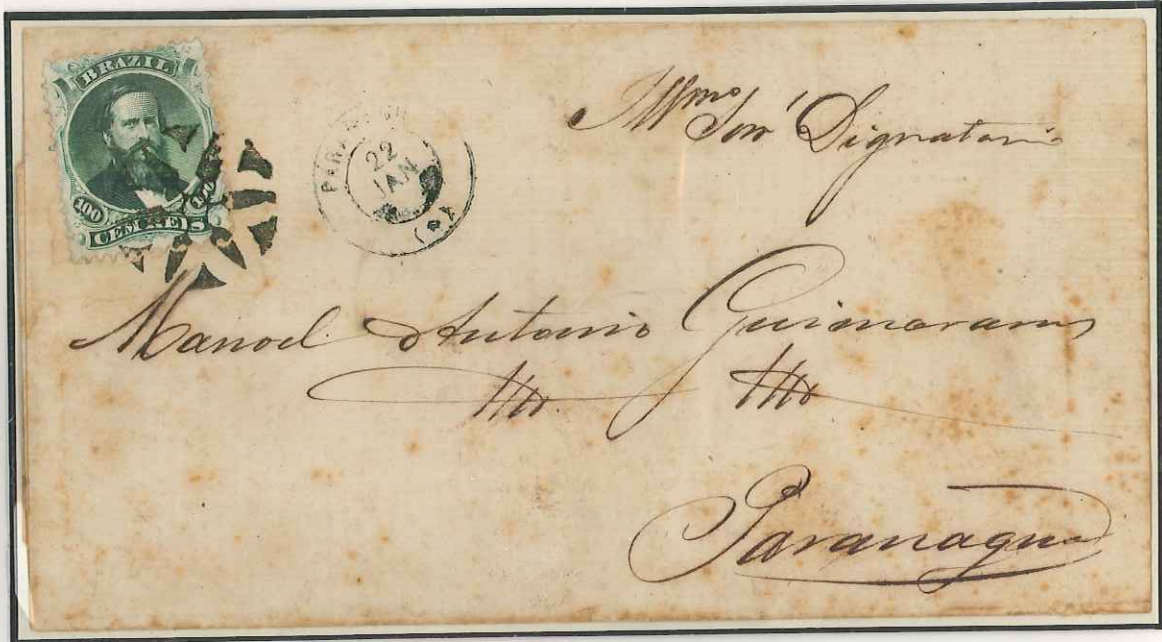 BRAZIL
100 100
CEM REIS
22
JAN
Illmo Snr Dignatario
Manoel Antonio Guimaraens
Paranagua